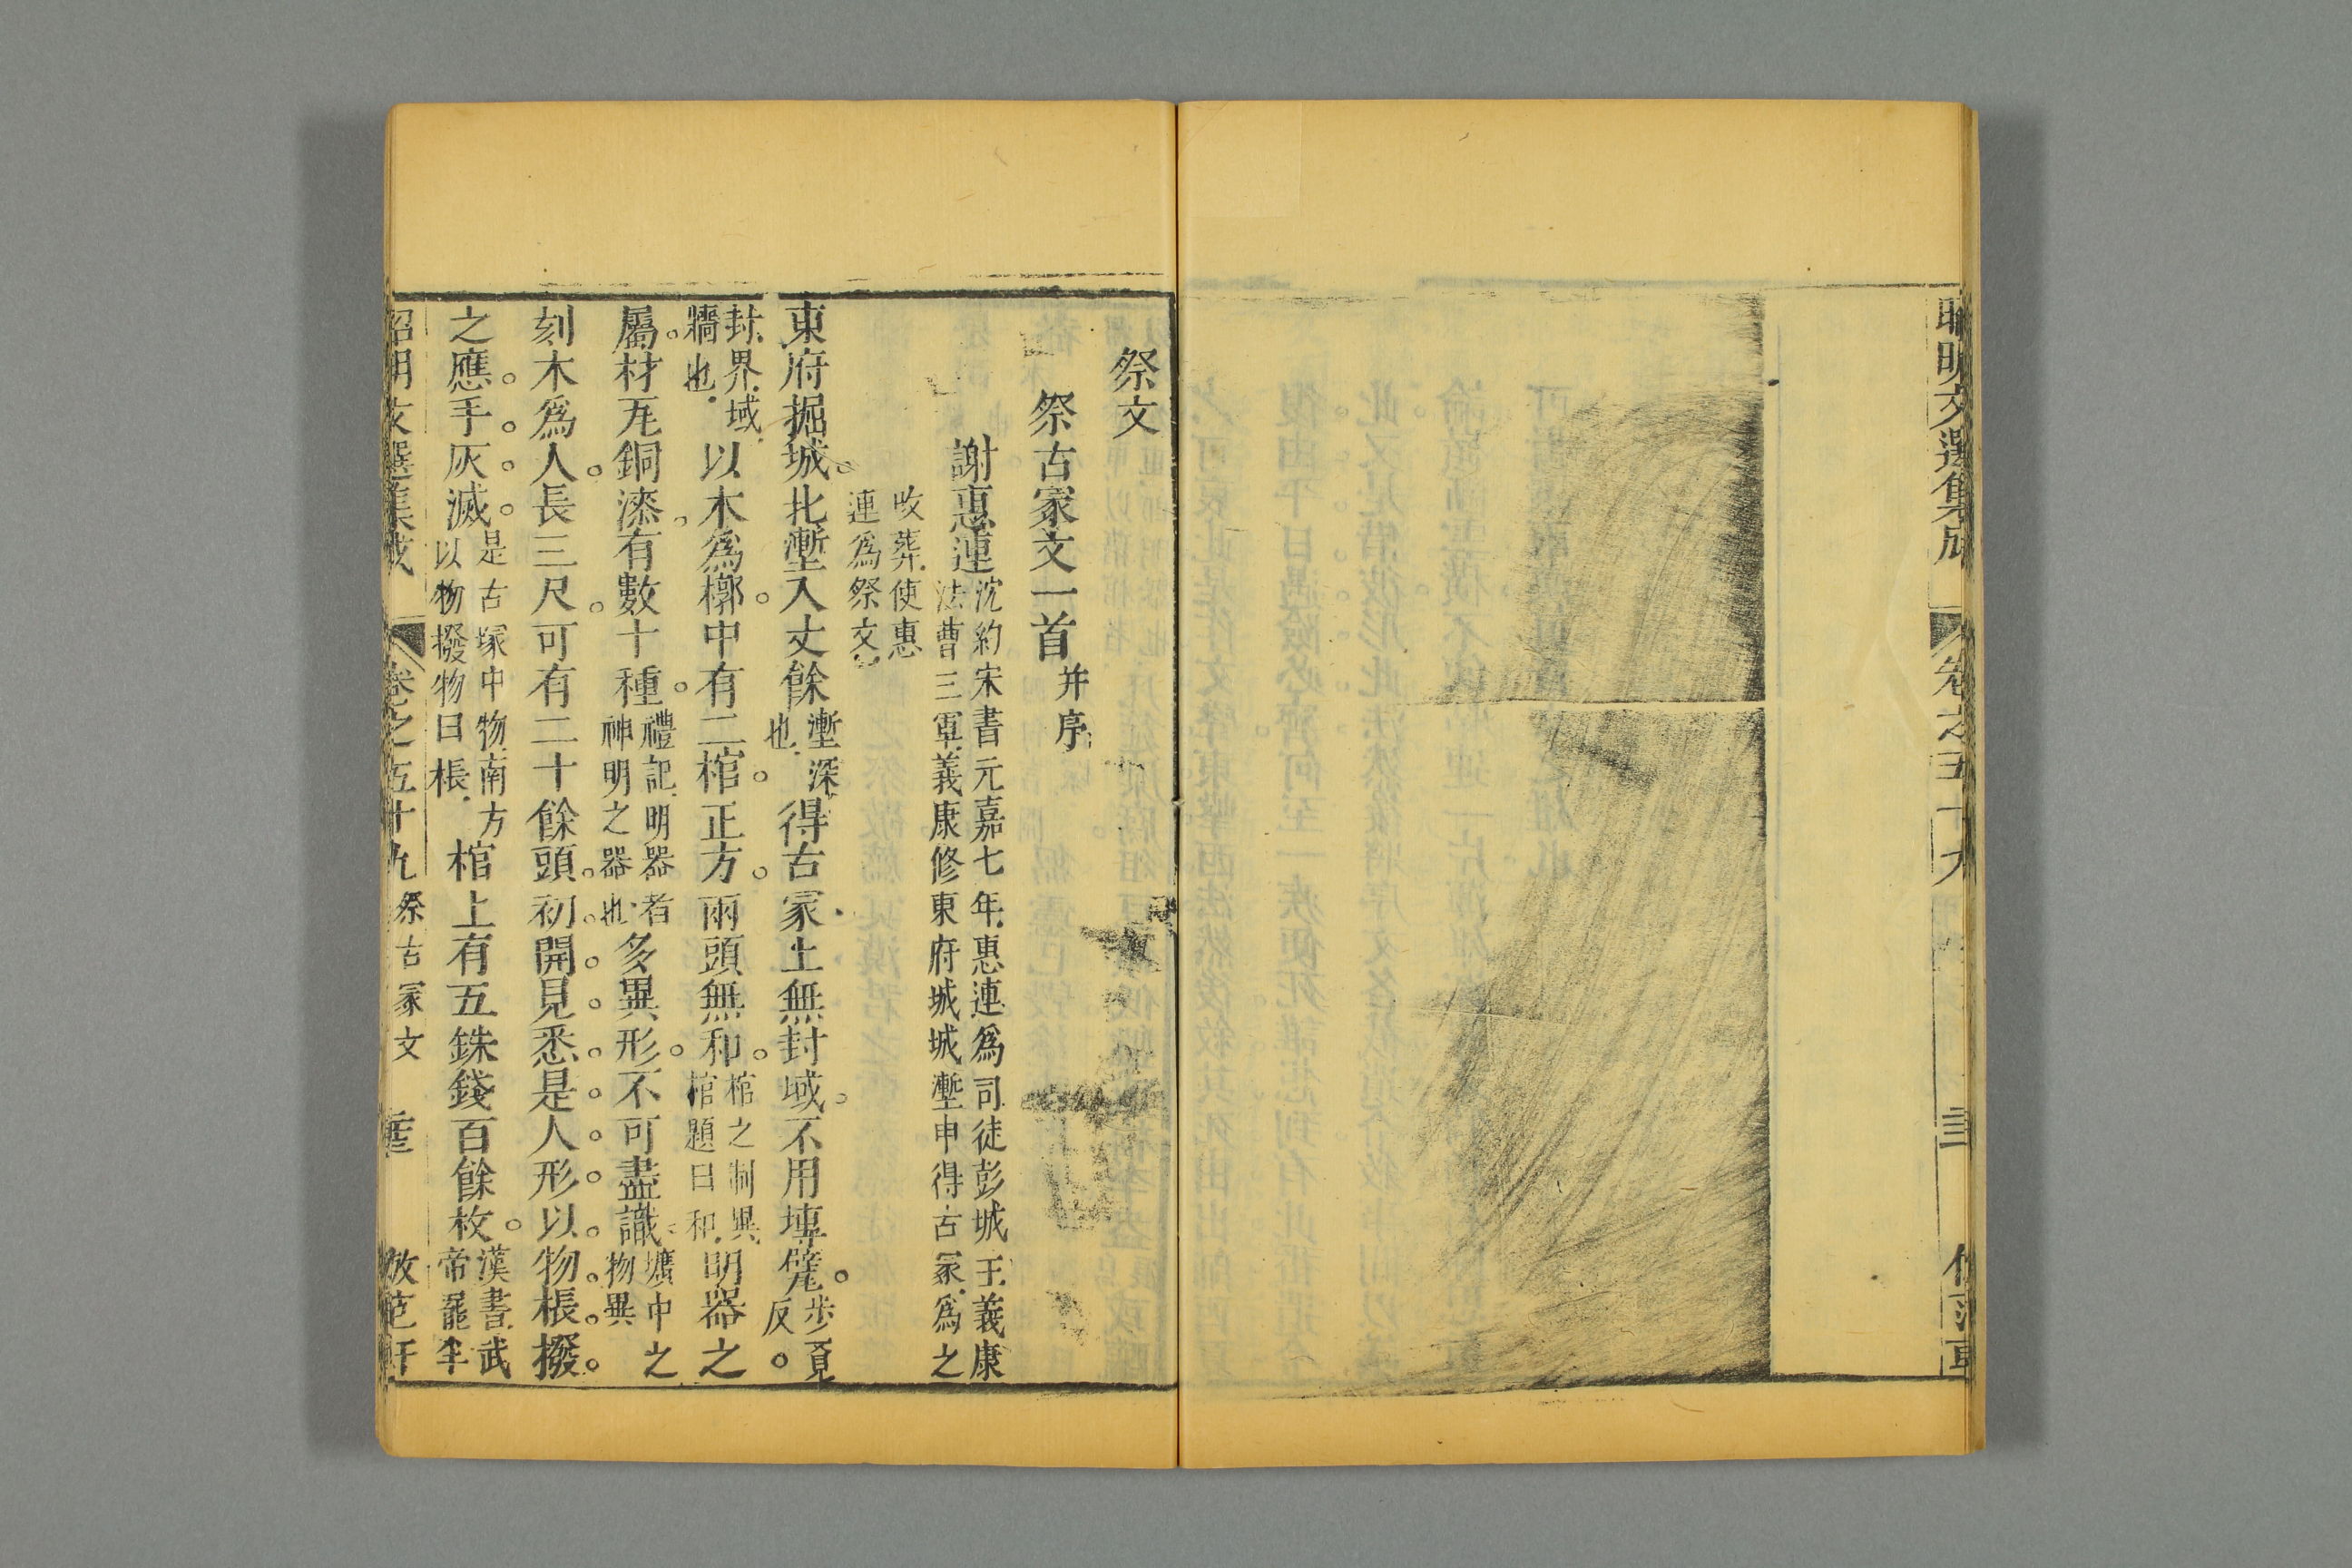 昭明文選集成 卷之五十九
祭文
祭古冢文一首并序
謝惠連沈約宋書元嘉七年惠連爲司徒彭城王義康
法曹三軍義康修東府城城塹中得古冢爲之
收葬使惠
連爲祭文
東府掘城北塹入丈餘塹深也得古冢上無封域不用塼甓步覓反
封界域
牆也以木爲槨中有二棺正方兩頭無和棺之制異
棺題曰和明器之
屬材瓦銅漆有數十種禮記明器者
神明之器也多異形不可盡識壙中之
物異
刻木爲人長三尺可有二十餘頭初開見悉是人形以物棖撥
之應手灰滅是古塚中物南方
以物撥物曰棖棺上有五銖錢百餘枚漢書武
帝罷半
昭明文選集成 卷之五十九 祭古冢文 倣范軒